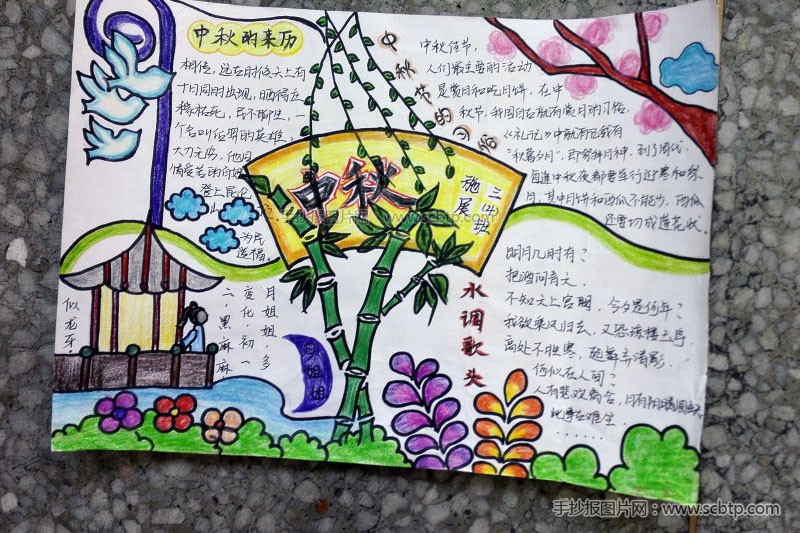 中秋的来历
相传，远在时候天上有
十日同时出现，晒得庄
稼枯死，民不聊生，一
个名叫后羿的英雄，
力大无穷，他同
情受苦的
登上昆仑
山
为民
造福。
中秋
三(4)班
施展
中秋节的习俗
中秋佳节，
人们最主要的活动
是赏月和吃月饼，在中
秋节，我国自古就有赏月的习俗，
《礼记》中就有记载有
“秋暮夕月”，即祭拜月神，到了周代，
每逢中秋夜都要举行迎寒和祭
月，其中月饼和西瓜不能少，西瓜
还要切成莲花状。
水调歌头
明月几时有？
把酒问青天，
不知天上宫阙，今夕是何年？
我欲乘风归去，又恐琼楼玉宇
高处不胜寒，起舞弄清影，
何似在人间？
人有悲欢离合，月有阴晴圆缺
此事古难全
......
月姐姐
月姐姐，多
变化，初一
二，黑麻麻
似龙车.
手抄报图片网 www.scbtp.com
手抄报图片网：www.scbtp.com